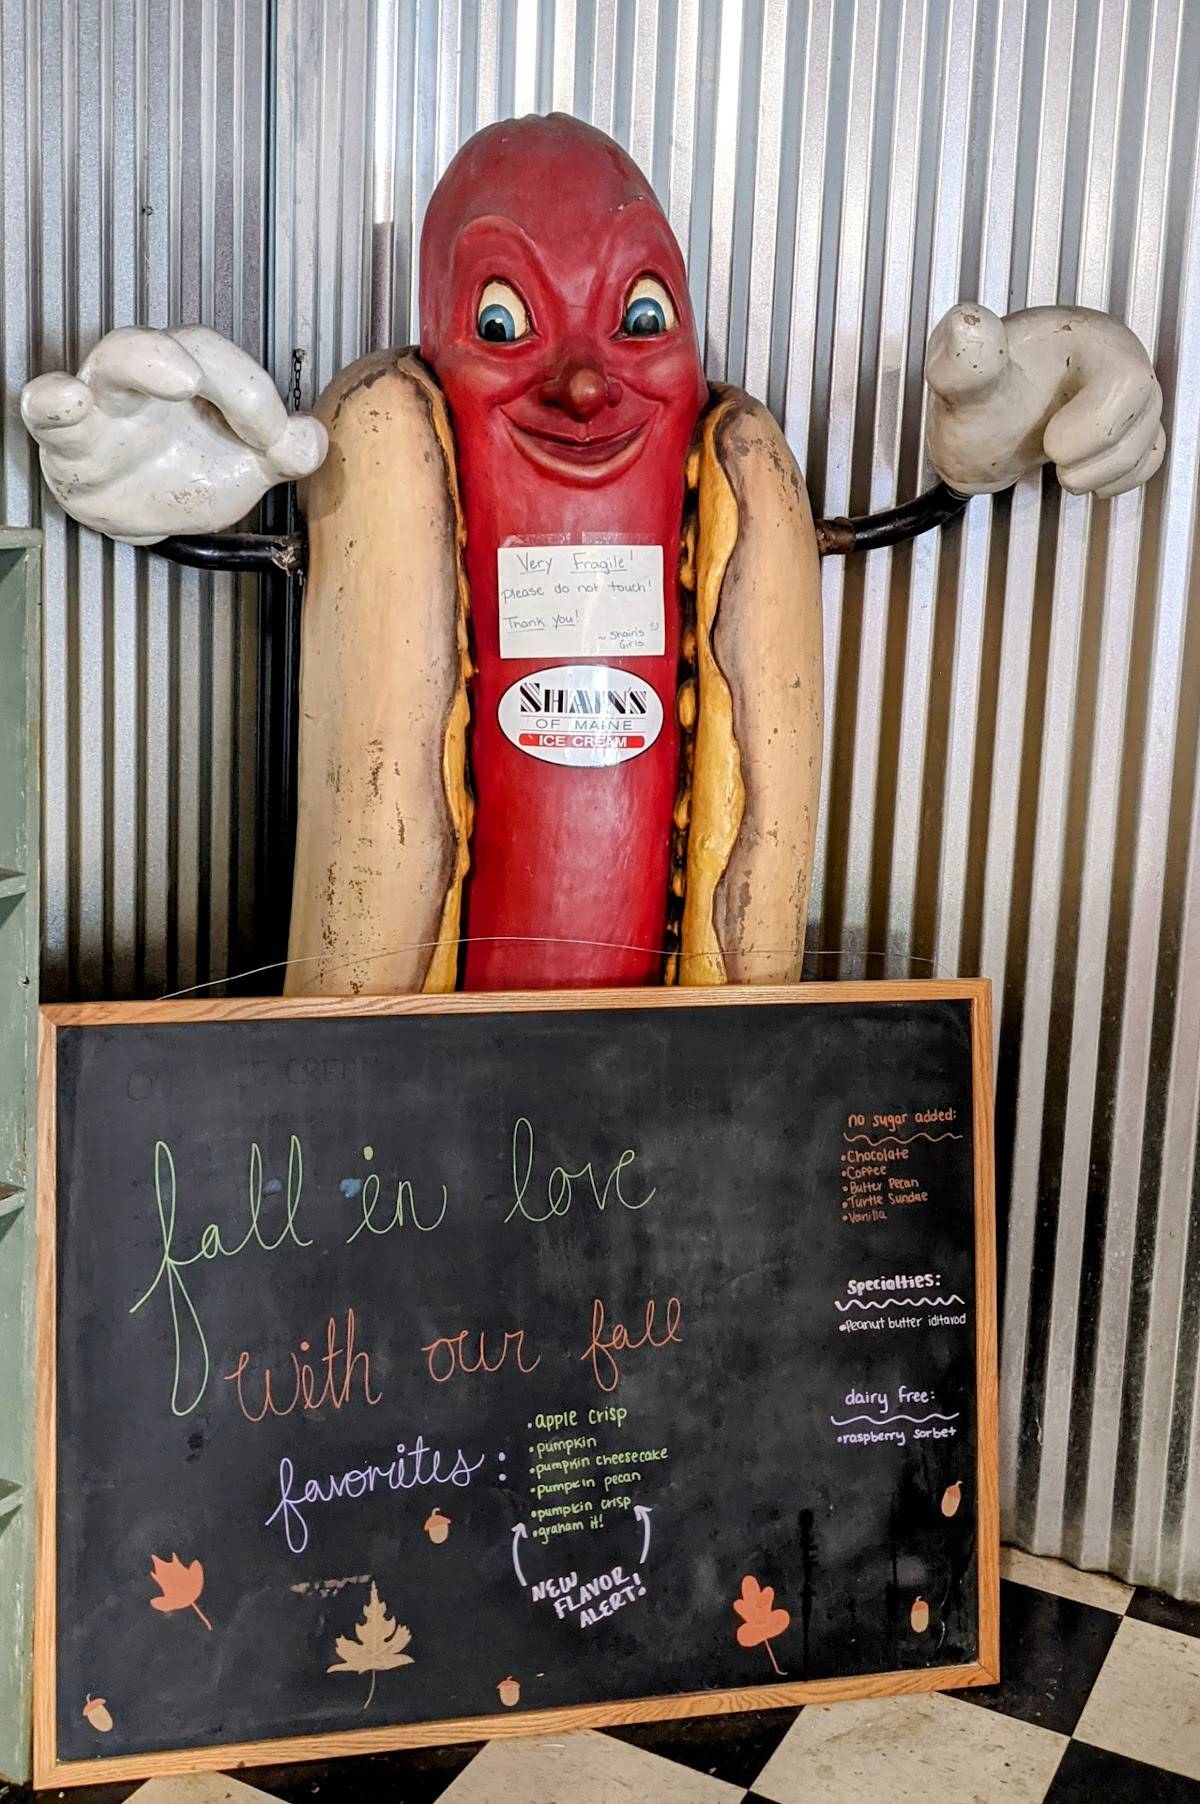 Very Fragile!
Please do not touch!
Thank you!
~ Shain's
Girls
SHAIN'S
OF MAINE
ICE CREAM
fall in love
with our fall
favorites:
• apple crisp
• pumpkin
• pumpkin cheesecake
• pumpkin pecan
• pumpkin crisp
• graham it!
NEW
FLAVOR
ALERT!
no sugar added:
• Chocolate
• Coffee
• Butter Pecan
• Turtle Sundae
• Vanilla
Specialties:
• Peanut butter iditarod
dairy free:
• raspberry sorbet